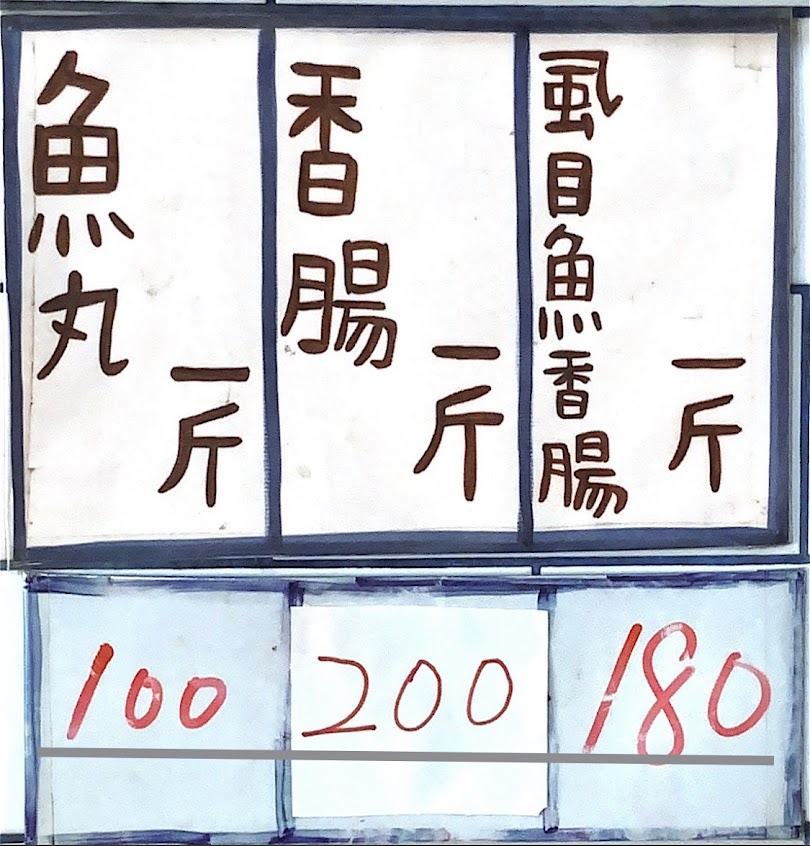 虱目魚香腸
一斤
香腸
一斤
魚丸
一斤
100
200
180